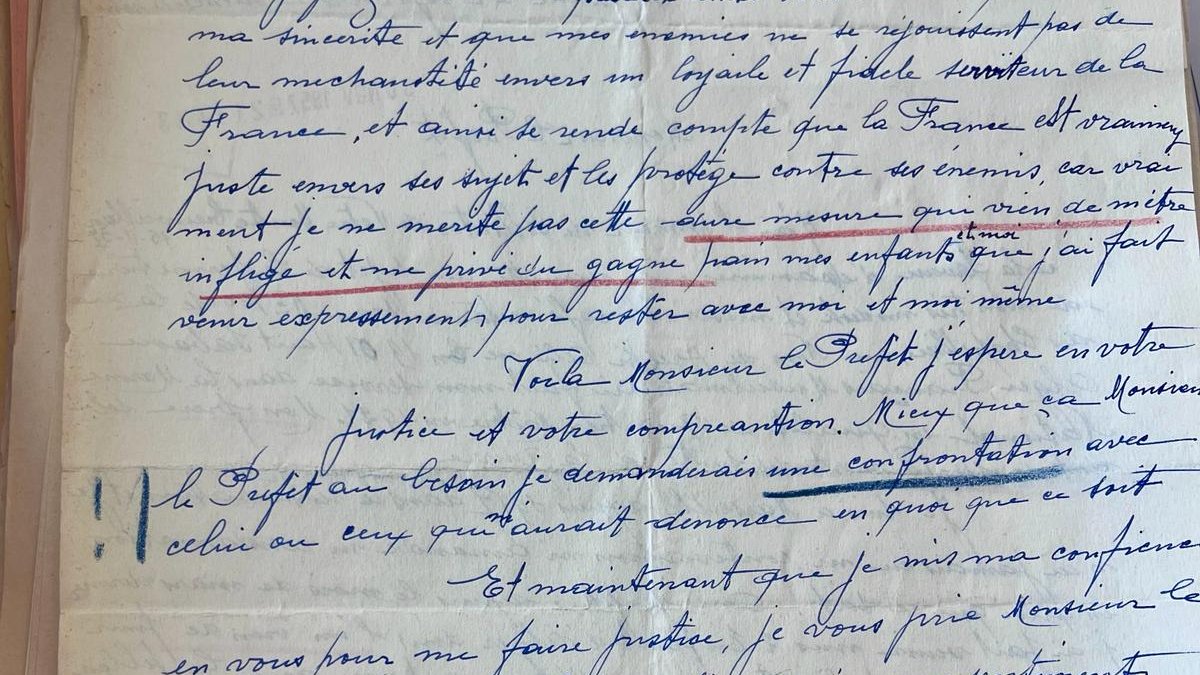 ma sincerité et que mes enemies ne se rejouissent pas de
leur mechanstité envers un loyaile et fidele serviteur de la
France, et ainsi se rende compte que la France est vraiment
juste envers ses sujets et les protège contre ses énemis, car vrai
ment je ne merite pas cette dure mesure qui vien de m'être
infligé et me privé du gagne pain mes enfants et moi que j'ai fait
venir expressement pour rester avec moi et moi même
Voila Monsieur le Prefet j'espère en votre
justice et votre compreantion. Mieux que ça Monsieur
le Prefet au besoin je demanderais une confrontation avec
celui ou ceux qui m'aurait dénoncé en quoi que ce soit
Et maintenant que je mis ma confience
en vous pour me faire justice, je vous prie Monsieur le